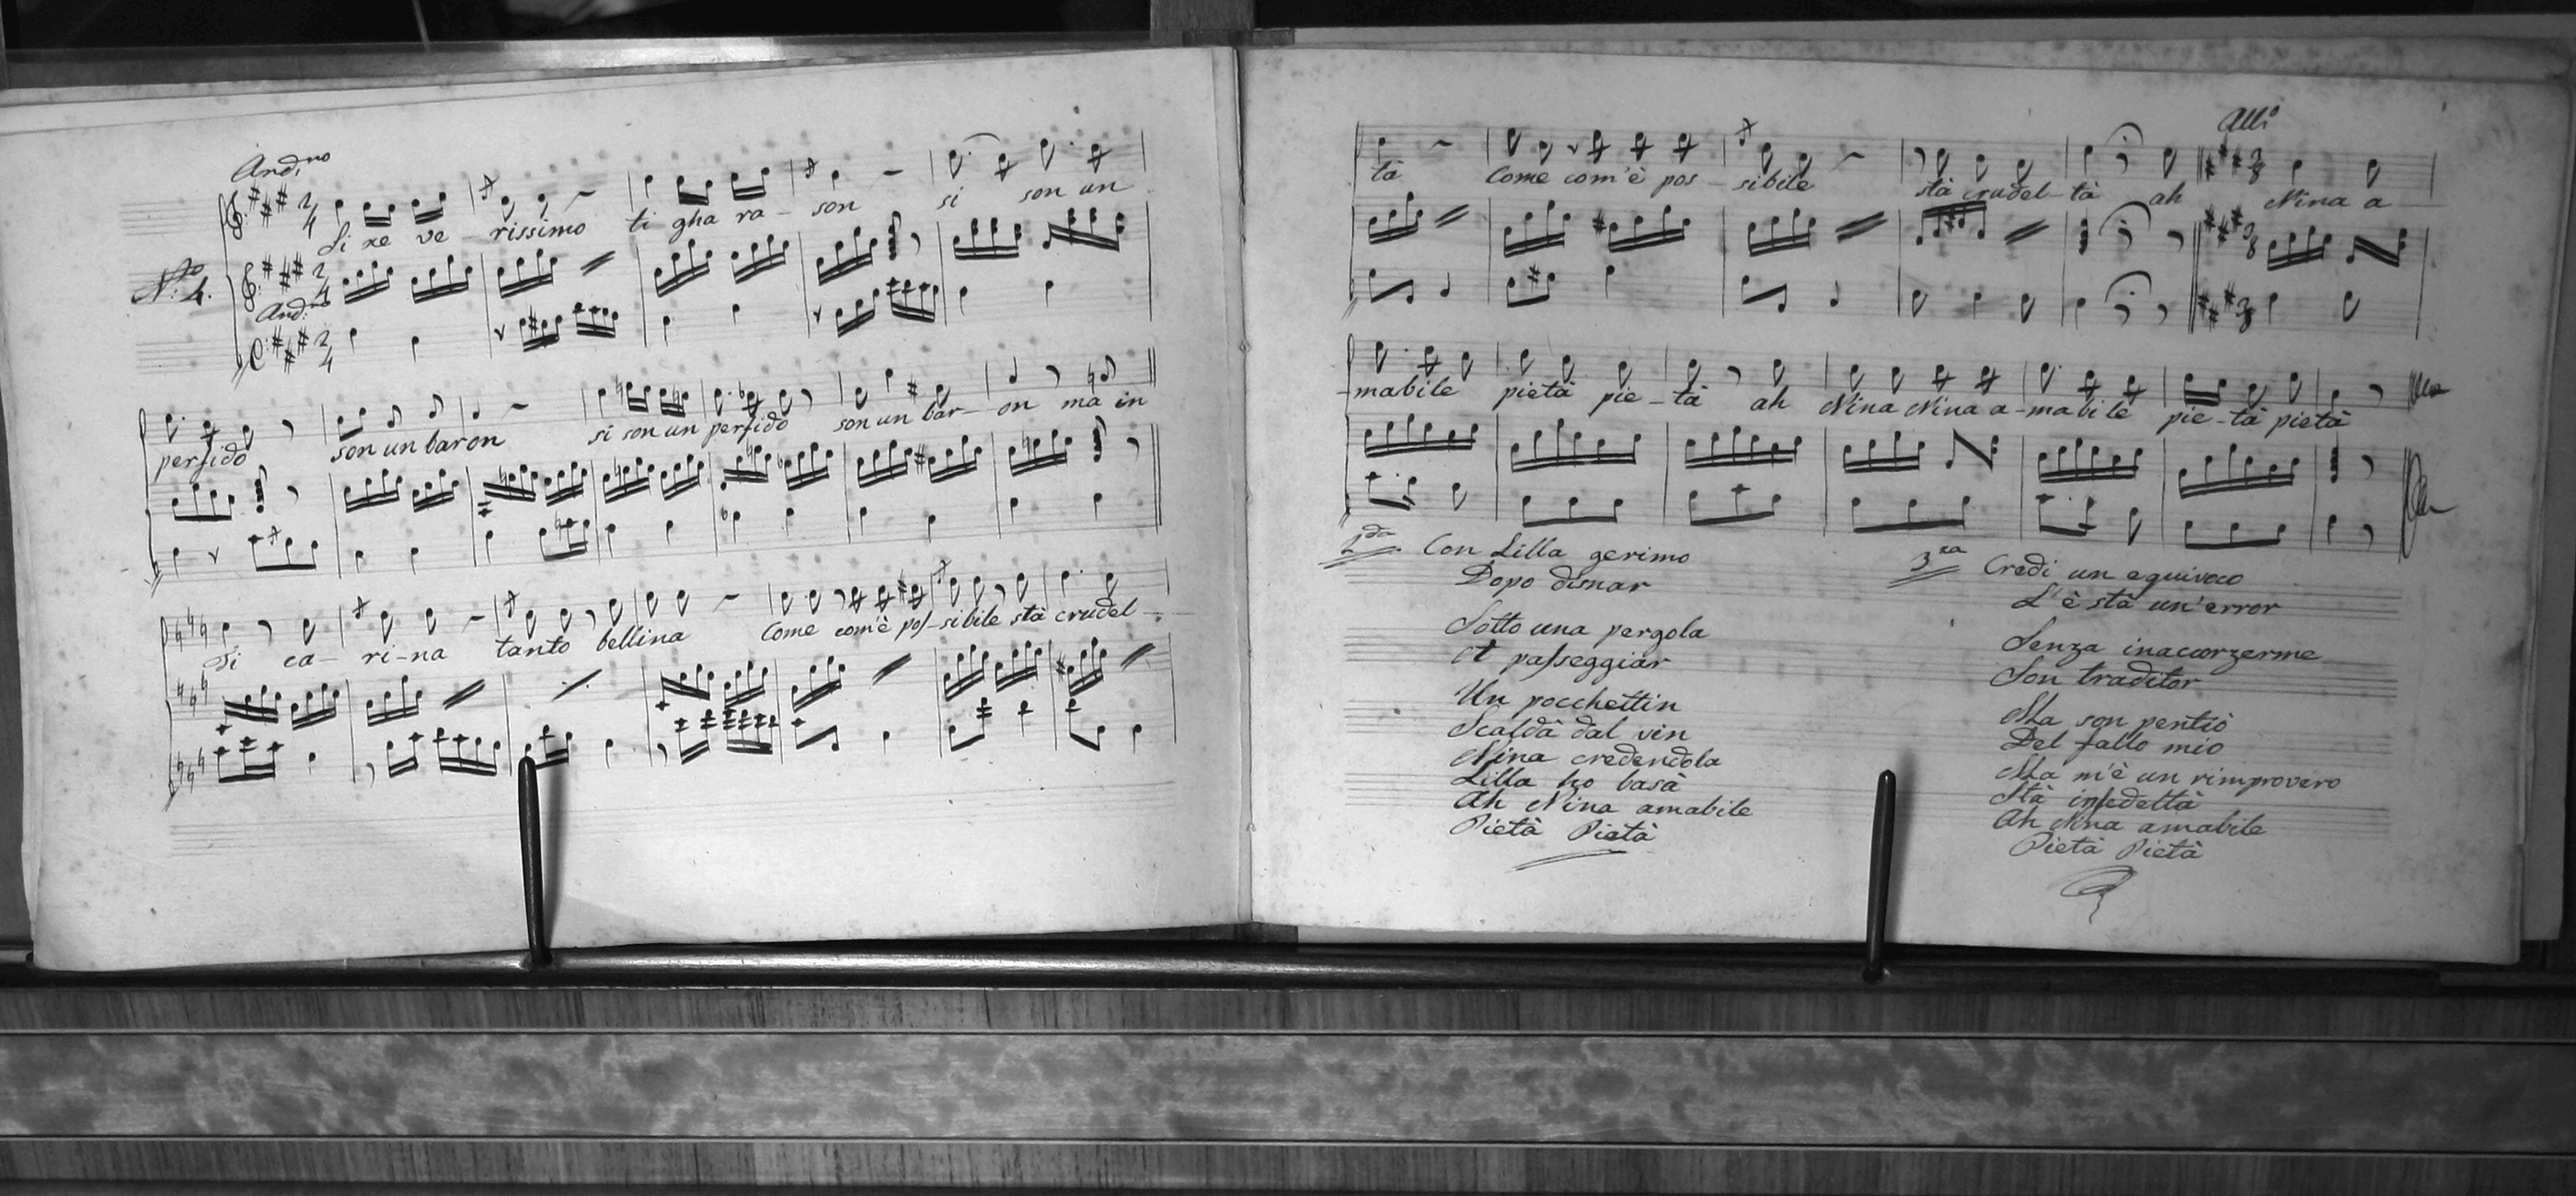 And.no
N.o 4.
Si xe ve - rissimo ti gha ra - son si son un
And.no
perfido son un baron si son un perfido son un bar - on ma in
ti ca - ri - na tanto bellina Come com'è pos - sibile stà crudel -
All.o
tà Come com'è pos - sibile stà crudel - tà ah Nina a
- mabile pietà pie - tà ah Nina Nina a - mabile pie - tà pietà
2da Con Lilla gerimo
Dopo disnar
Sotto una pergola
A passeggiar
Un pocchettin
Scaldà dal vin
Nina credendola
Lilla ho basà
Ah Nina amabile
Pietà Pietà
3za Credi un equivoco
L'è stà un'error
Senza inaccorzerme
Son traditor
Ma son pentiò
Del fallo mio
Ma m'è un rimprovero
Stà infedeltà
Ah Nina amabile
Pietà Pietà